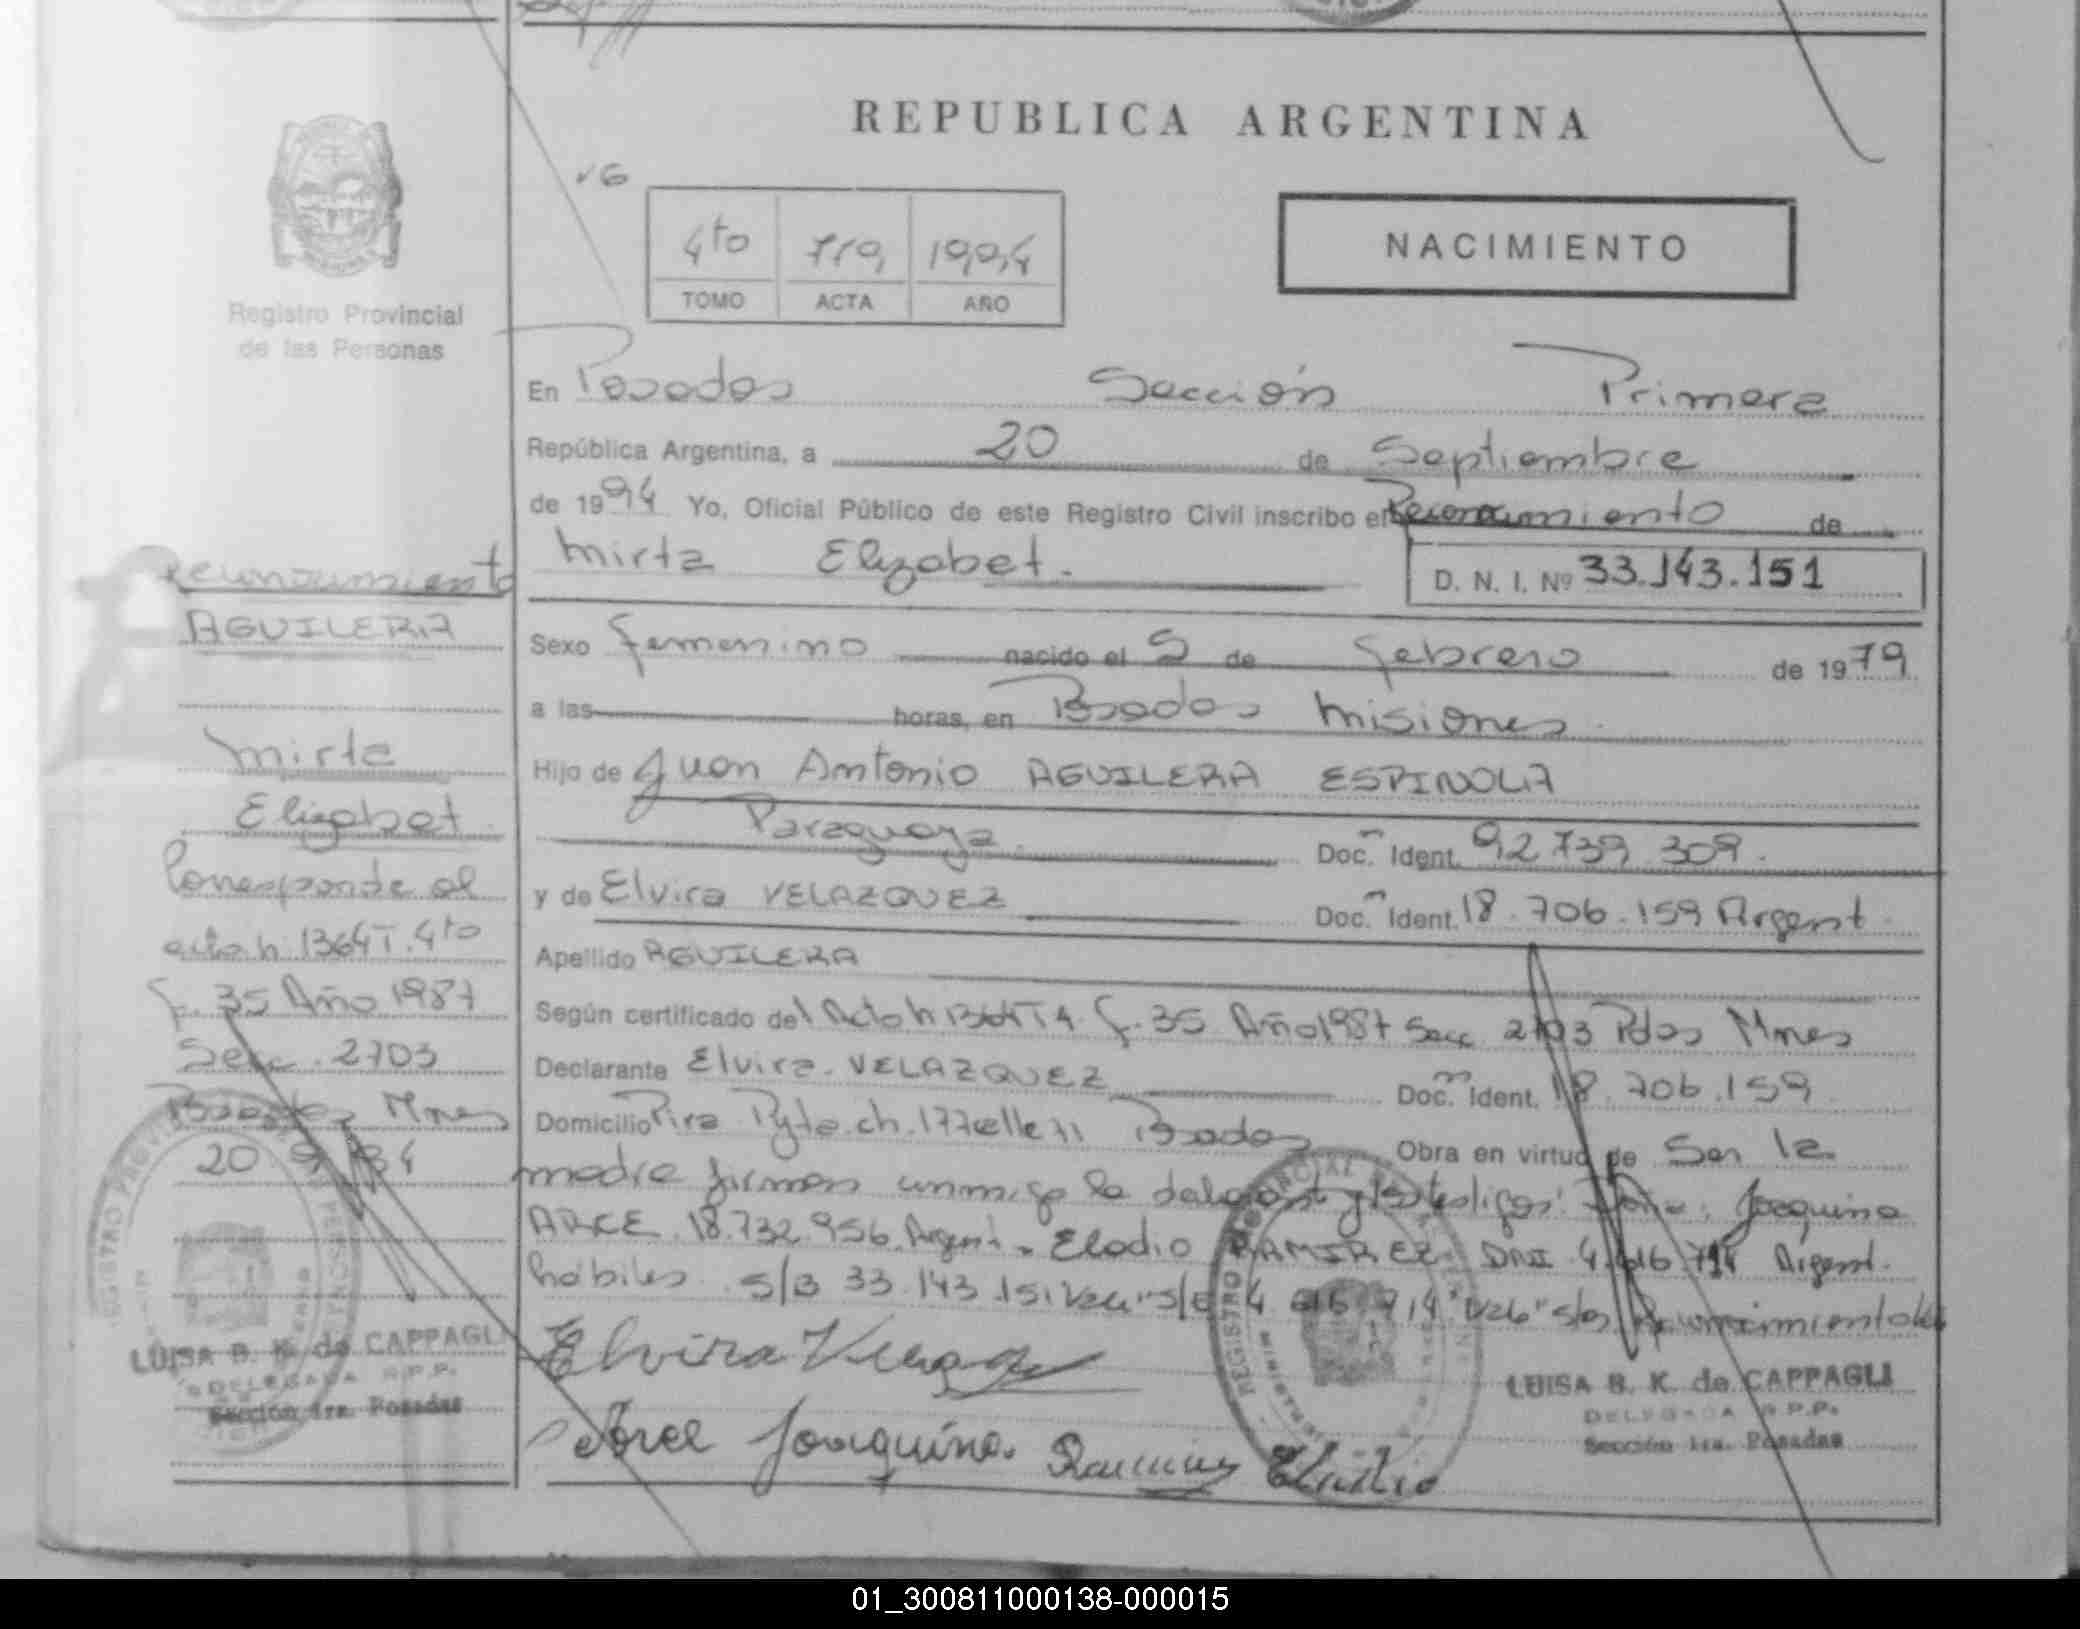 REPUBLICA ARGENTINA
NACIMIENTO
4to 719 1994
TOMO ACTA AÑO
Registro Provincial
de las Personas
En Posadas Sección Primera
República Argentina, a 20 de Septiembre
de 1994 Yo, Oficial Público de este Registro Civil inscribo el Reconocimiento de
Mirta Elizabet.
D. N. I. Nº 33.143.151
Sexo femenino nacido el 5 de febrero de 1979
a las horas, en Posadas Misiones.
Hijo de Juan Antonio AGUILERA ESPINOLA
Paraguaya Doc. Ident. 92 739 309.
y de Elvira VELAZQUEZ Doc. Ident. 18.706.159 Argent.
Apellido AGUILERA
Según certificado del Acta n 1364 T 4 f. 35 Año 1987 Secc 2703 Pdas Mnes
Declarante Elvira VELAZQUEZ Doc. Ident. 18.706.159
Domicilio Pira Pyta ch. 177 calle 71 Posadas Obra en virtud de Ser la
madre firman conmigo la y testigos: Joaquina
ARCE 18.732.956 Argent. Elodio RAMIREZ DNI 4.616.714 Argent.
hábiles. S/B 33.143.151 Vale S/E 4 616 714 "Vale"
Elvira
Arce Joaquina Ramirez Elodio
LUISA B. K. de CAPPAGLI
DELEGADA R.P.P.
Sección 1ra. Posadas
Reconocimiento
AGUILERA
Mirta
Elizabet
Corresponde al
acta n. 1364 T. 4to
f. 35 Año 1987
Secc. 2703
Posadas Mnes
20 9 94
LUISA B. K. de CAPPAGLI
DELEGADA R.P.P.
Sección 1ra. Posadas
01_300811000138-000015